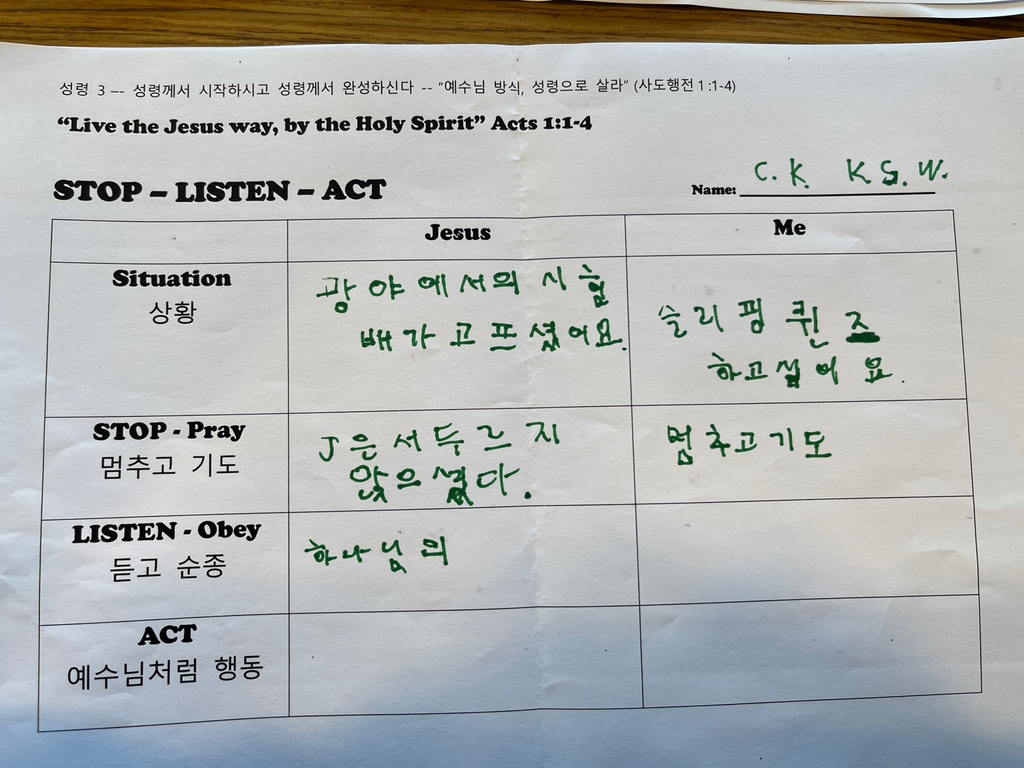 성령 3 –- 성령께서 시작하시고 성령께서 완성하신다 -- “예수님 방식, 성령으로 살라” (사도행전 1:1-4)
“Live the Jesus way, by the Holy Spirit” Acts 1:1-4
STOP – LISTEN – ACT
Name: C. K. K. S. W.
Jesus
Me
Situation
상황
광야에서의 시험
배가 고프셨어요.
슬리핑 퀸즈
하고싶어요.
STOP - Pray
멈추고 기도
J은 서두르지
않으셨다.
멈추고기도
LISTEN - Obey
듣고 순종
하나님의
ACT
예수님처럼 행동